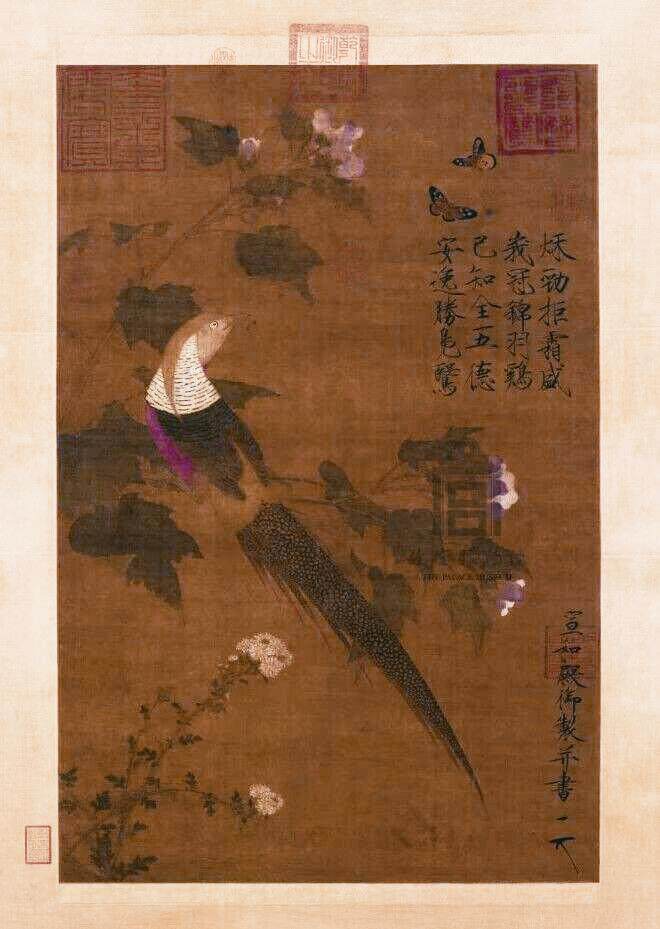 秋勁拒霜盛
峩冠錦羽鷄
已知全五德
安逸勝鳧鷖
宣和殿御製并書
THE PALACE MUSEUM